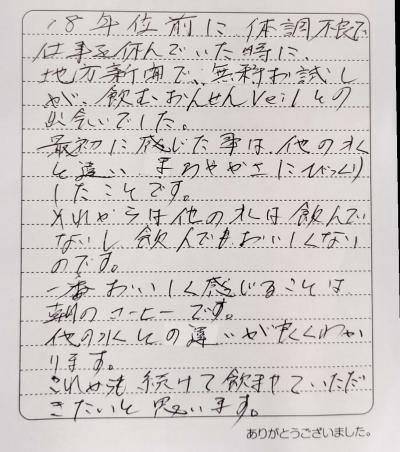 18年位前に体調不良で
仕事を休んでいた時に
地方新聞で、無料お試し
が、飲むおんせんVeilとの
出会いでした。
最初に感じた事は他の水
と違い まろやかさにびっくり
したことです。
それからは他の水は飲んで
ないし飲んでもおいしくない
のです。
一番おいしく感じることは
朝のコーヒーです。
他の水との違いが良くわか
ります。
これからも続けて飲ませていただ
きたいと思います。
ありがとうございました。